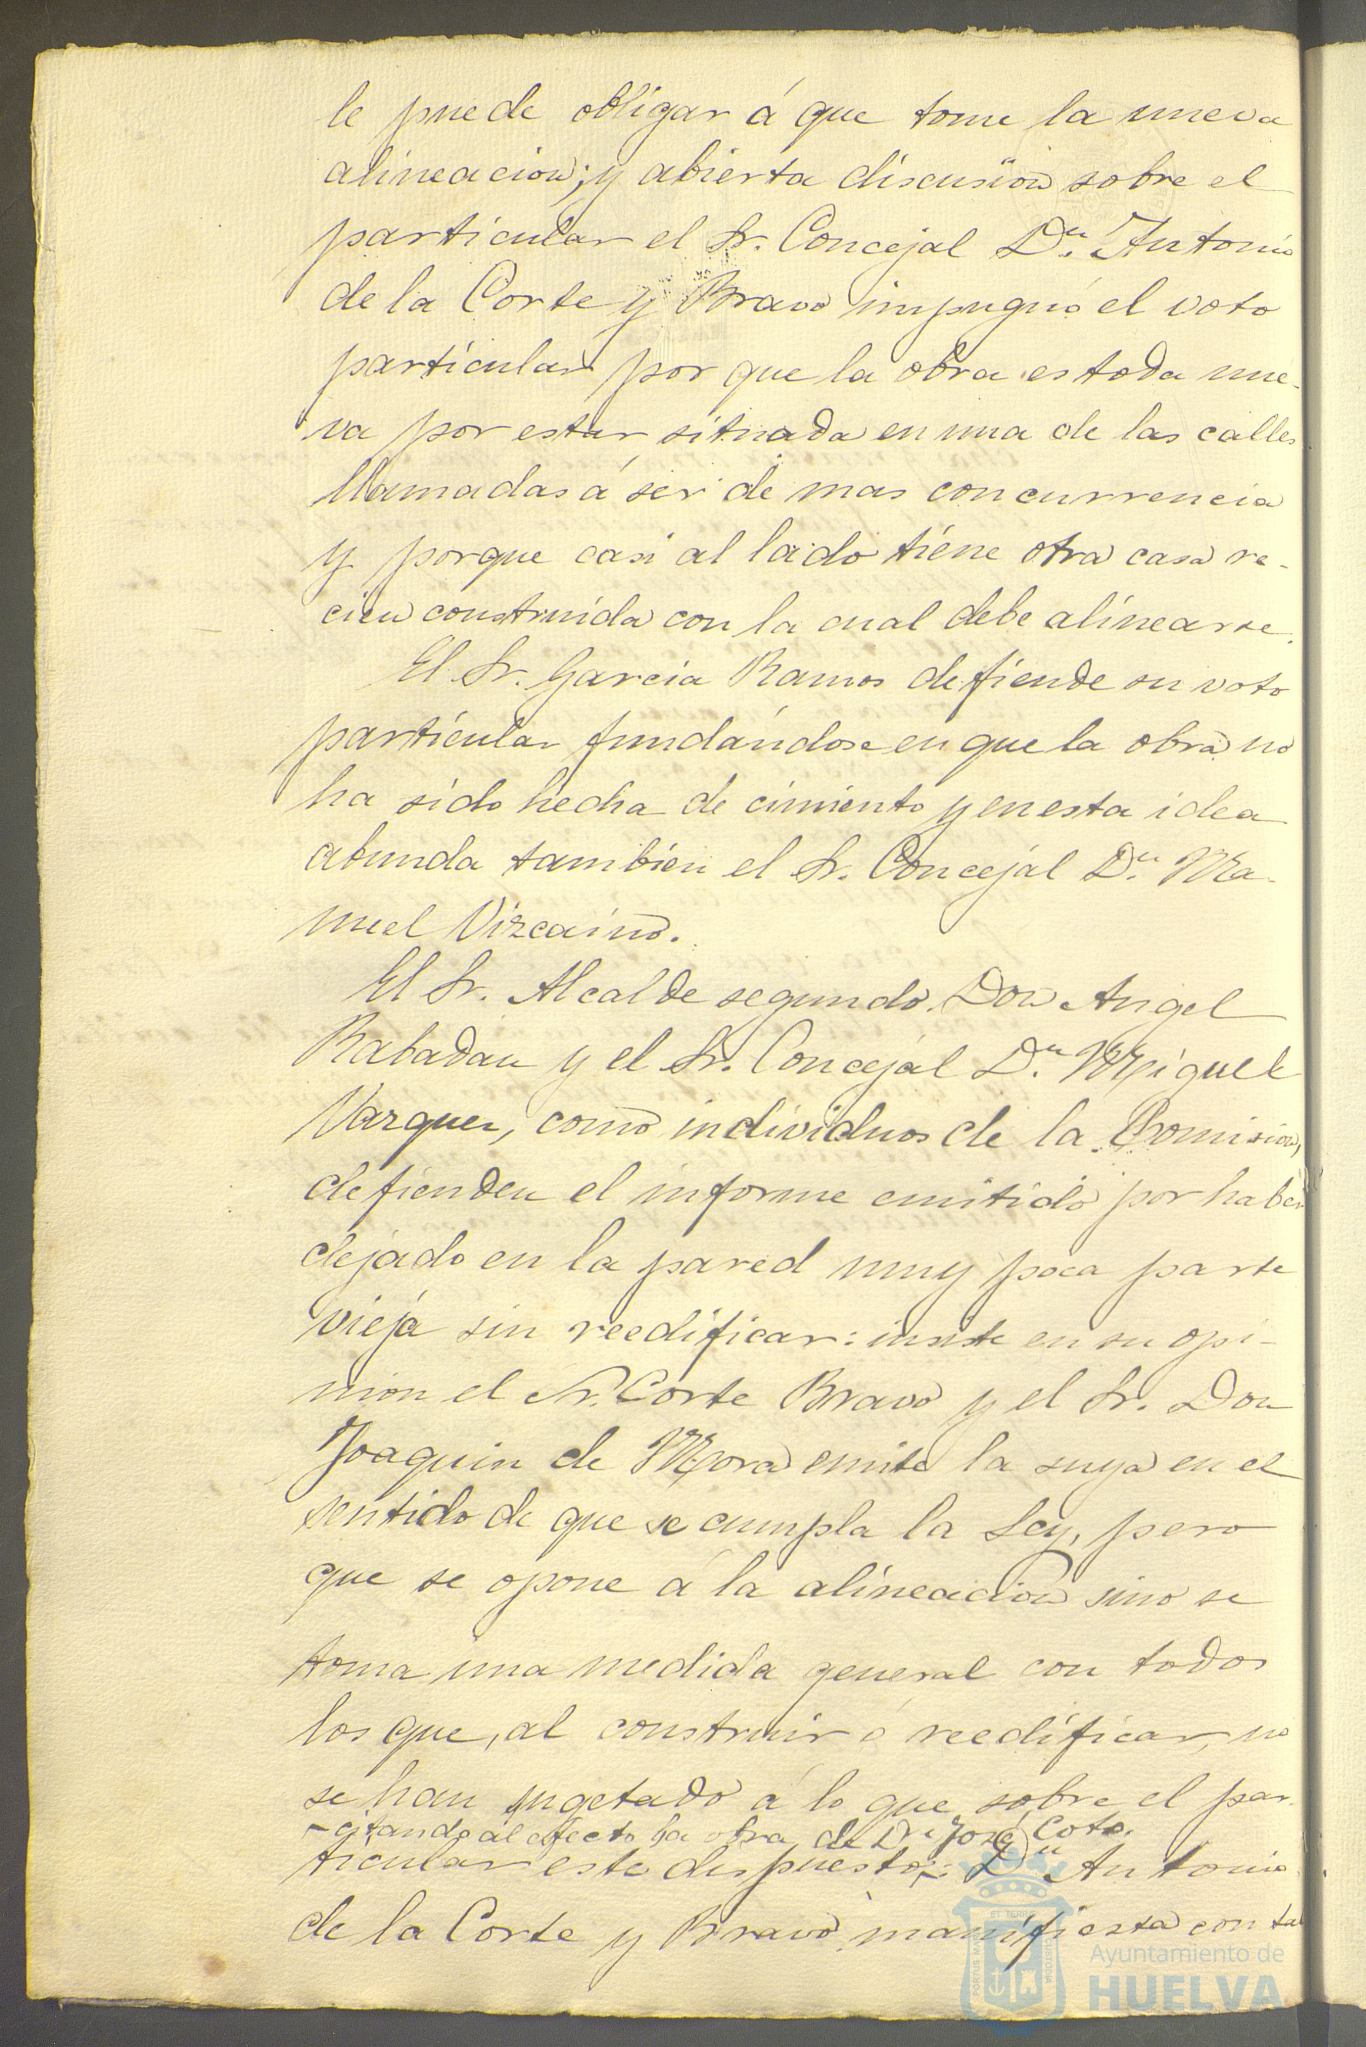 le puede obligar á que tome la nueva
alineacion; y abierta discusion sobre el
particular el Sr. Concejal Dn. Antonio
de la Corte y Bravo impugnó el voto
particular por que la obra es toda nue-
va por estar situada en una de las calles
llamadas á ser de mas concurrencia
y porque casi al lado tiene otra casa re-
cien construida con la cual debe alinearse.
El Sr. Garcia Ramos defiende su voto
particular fundándose en que la obra no
ha sido hecha de cimiento y en esta idea
abunda tambien el Sr. Concejal Dn. Ma-
nuel Vizcaino.
El Sr. Alcalde segundo Don Angel
Rabadan y el Sr. Concejal Dn. Miguel
Vazquez, como individuos de la Comision,
defienden el informe emitido por haber
dejado en la pared muy poca parte
vieja sin reedificar: insiste en su opi-
nion el Sr. Corte Bravo y el Sr. Don
Joaquin de Mora emite la suya en el
sentido de que se cumpla la Ley, pero
que se opone á la alineacion sino se
toma una medida general con todos
los que, al construir ó reedificar, no
se han sugetado á lo que sobre el par-
-citando al efecto la obra de Dn. José Coto.
ticular este dispuesto,-: Dn Antonio
de la Corte y Bravo manifiesta con tal
Ayuntamiento de
HUELVA